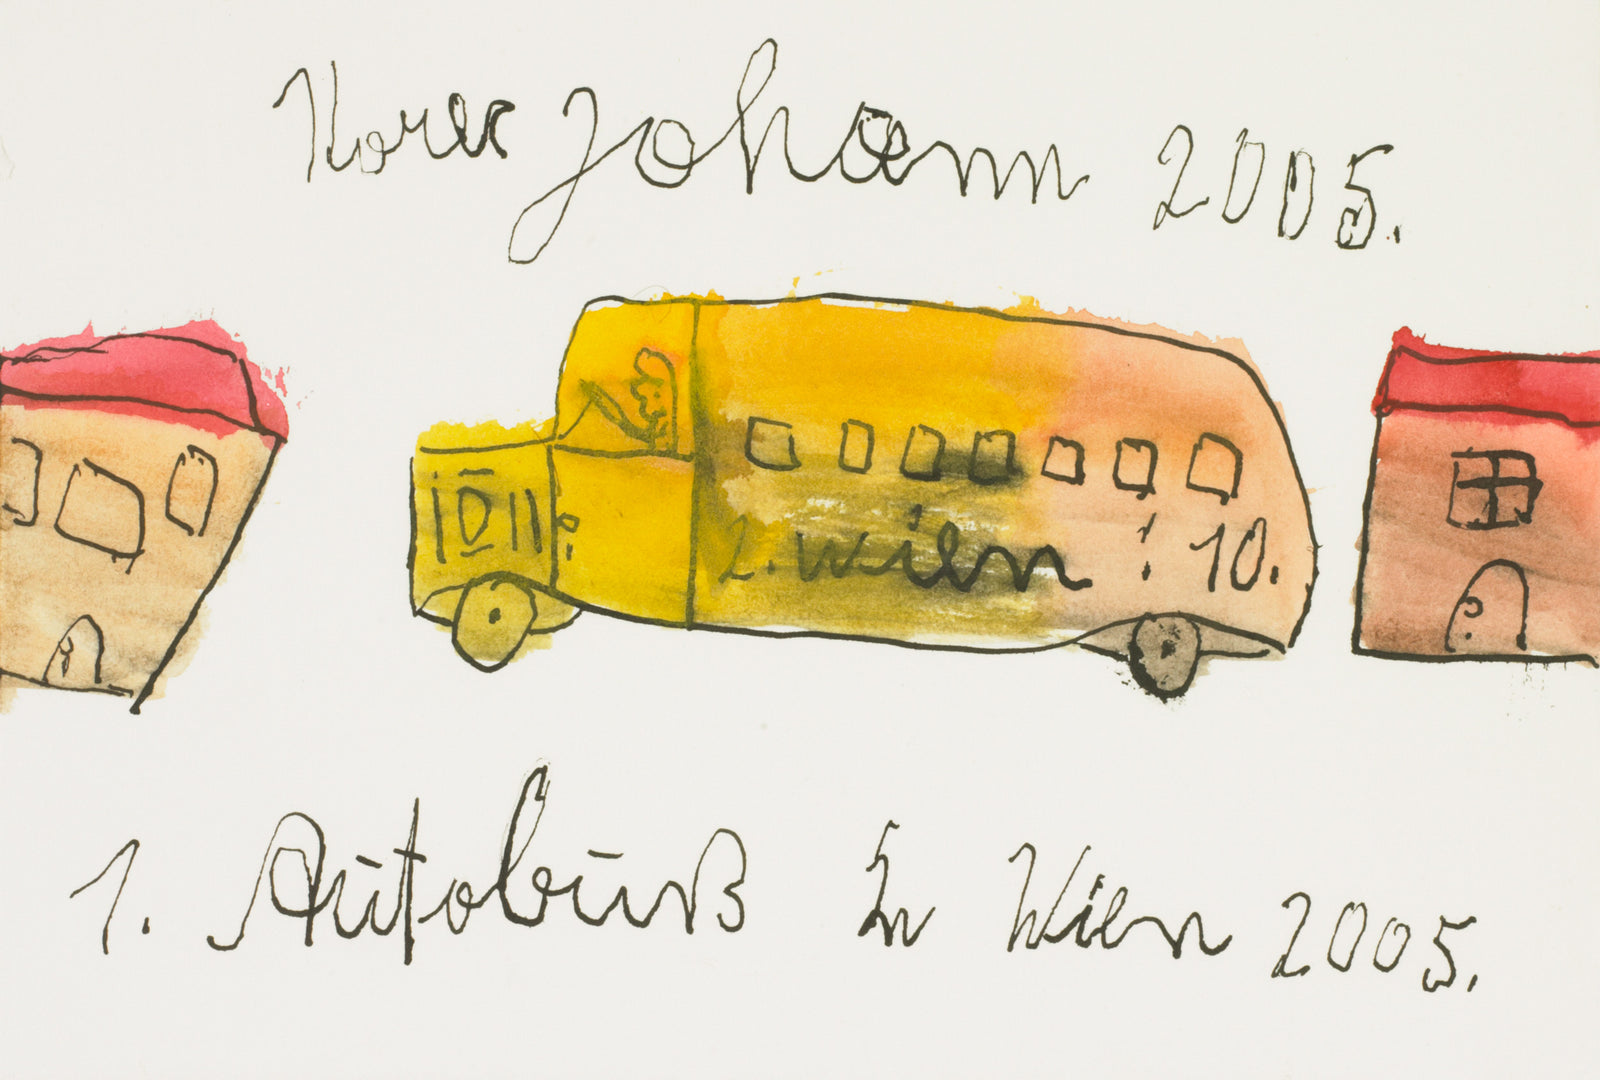 Korec Johann 2005.
2. Wien : 10.
1. Autobuß In Wien 2005.